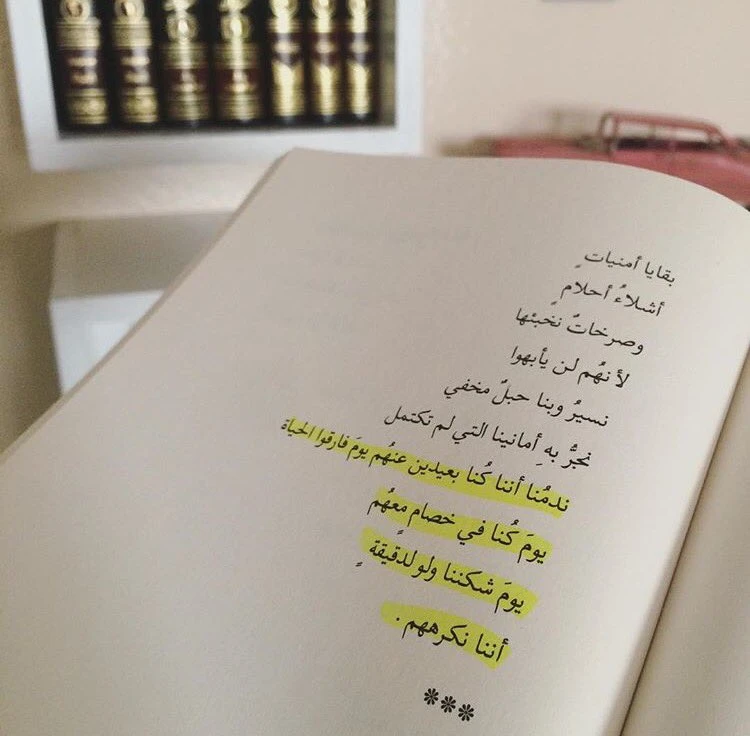 بقايا أمنياتٍ
أشلاءُ أحلامٍ
وصرخاتٌ نخبئها
لأنهُم لن يأبهوا
نسيرُ وبنا حبلٌ مخفي
نجرُّ بهِ أمانينا التي لم تكتمل
ندمُنا أننا كُنا بعيدين عنهُم يومَ فارقوا الحياة
يومَ كُنا في خصامٍ معهُم
يومَ شككنا ولو لدقيقةٍ
أننا نكرههم.
***